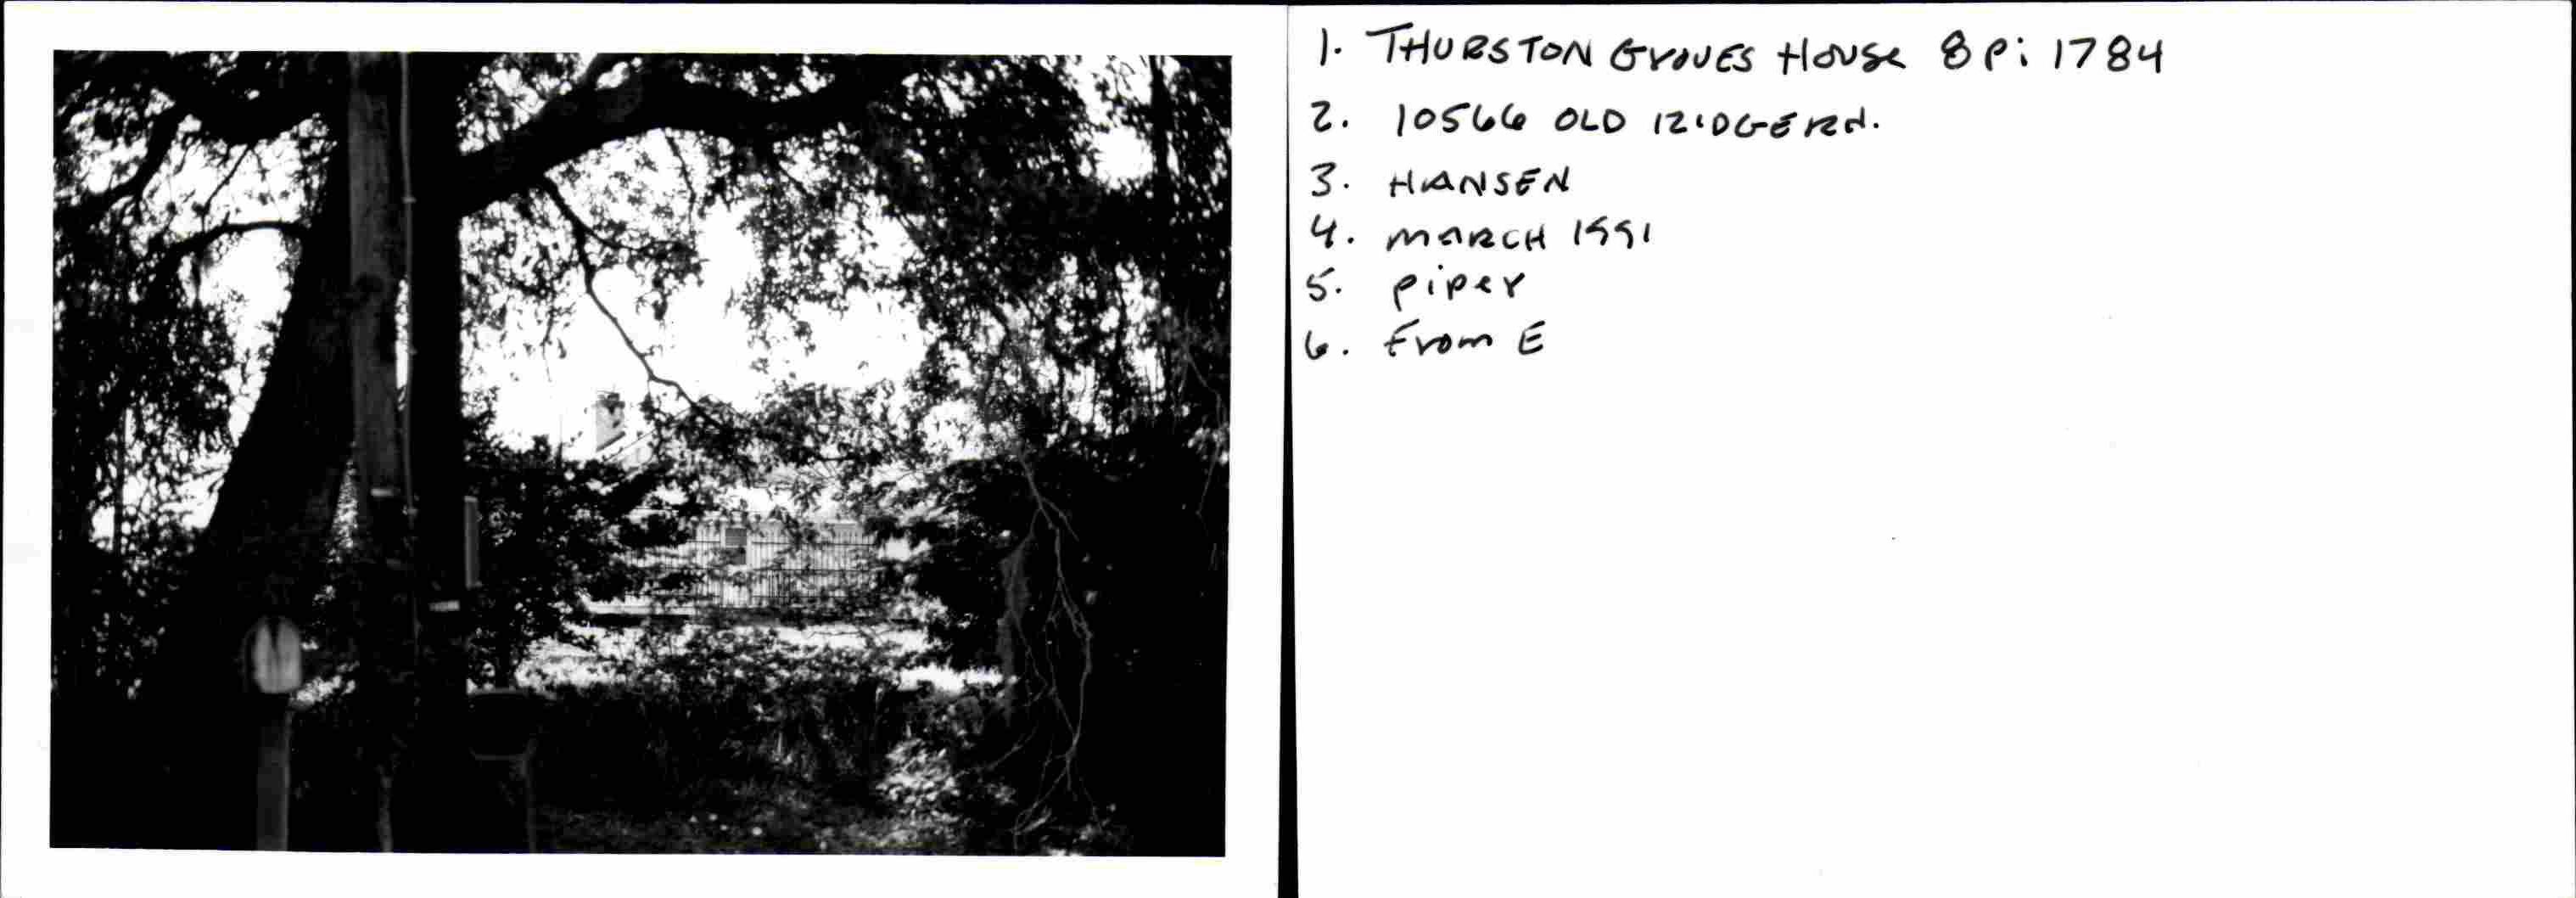 1. THURSTON GROVES HOUSE 8Pi 1784
2. 10566 OLD RIDGE Rd.
3. HANSEN
4. MARCH 1991
5. Piper
6. From E